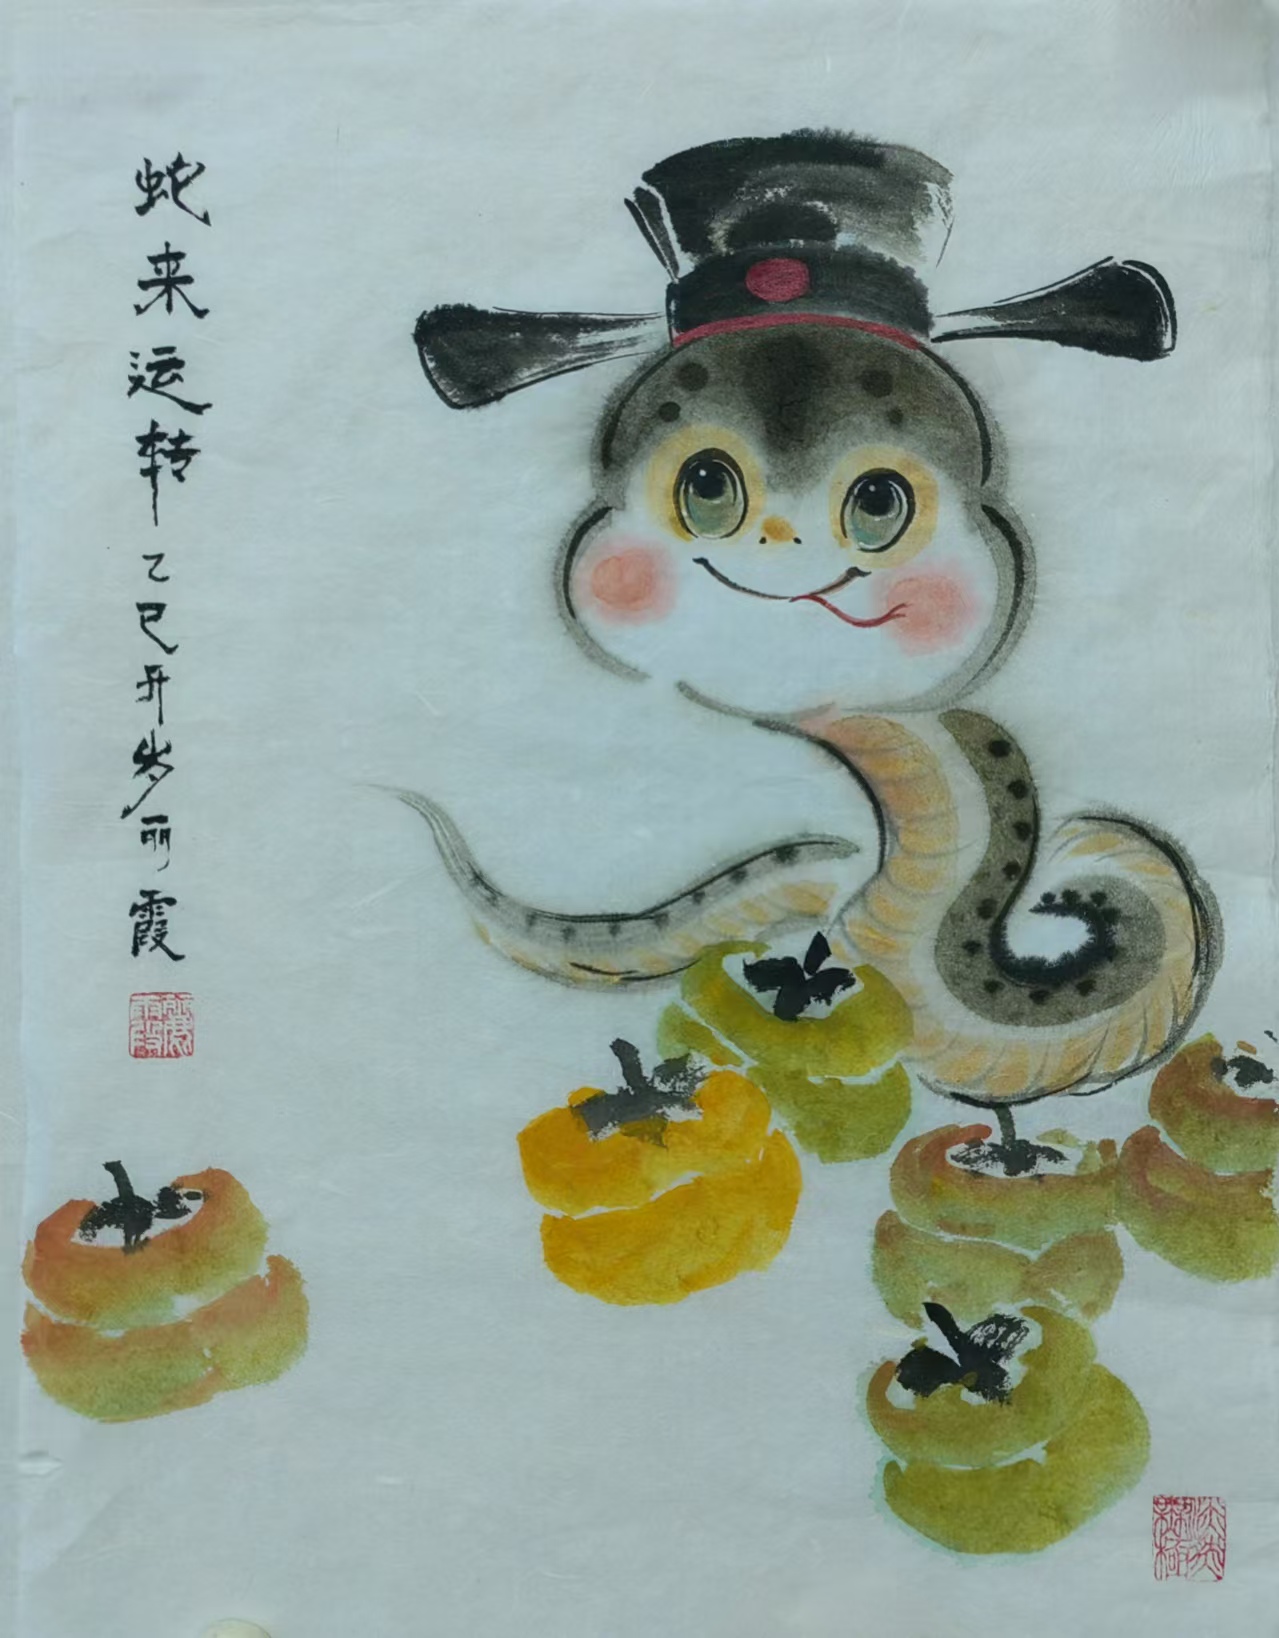 蛇来运转
乙巳开岁丽霞